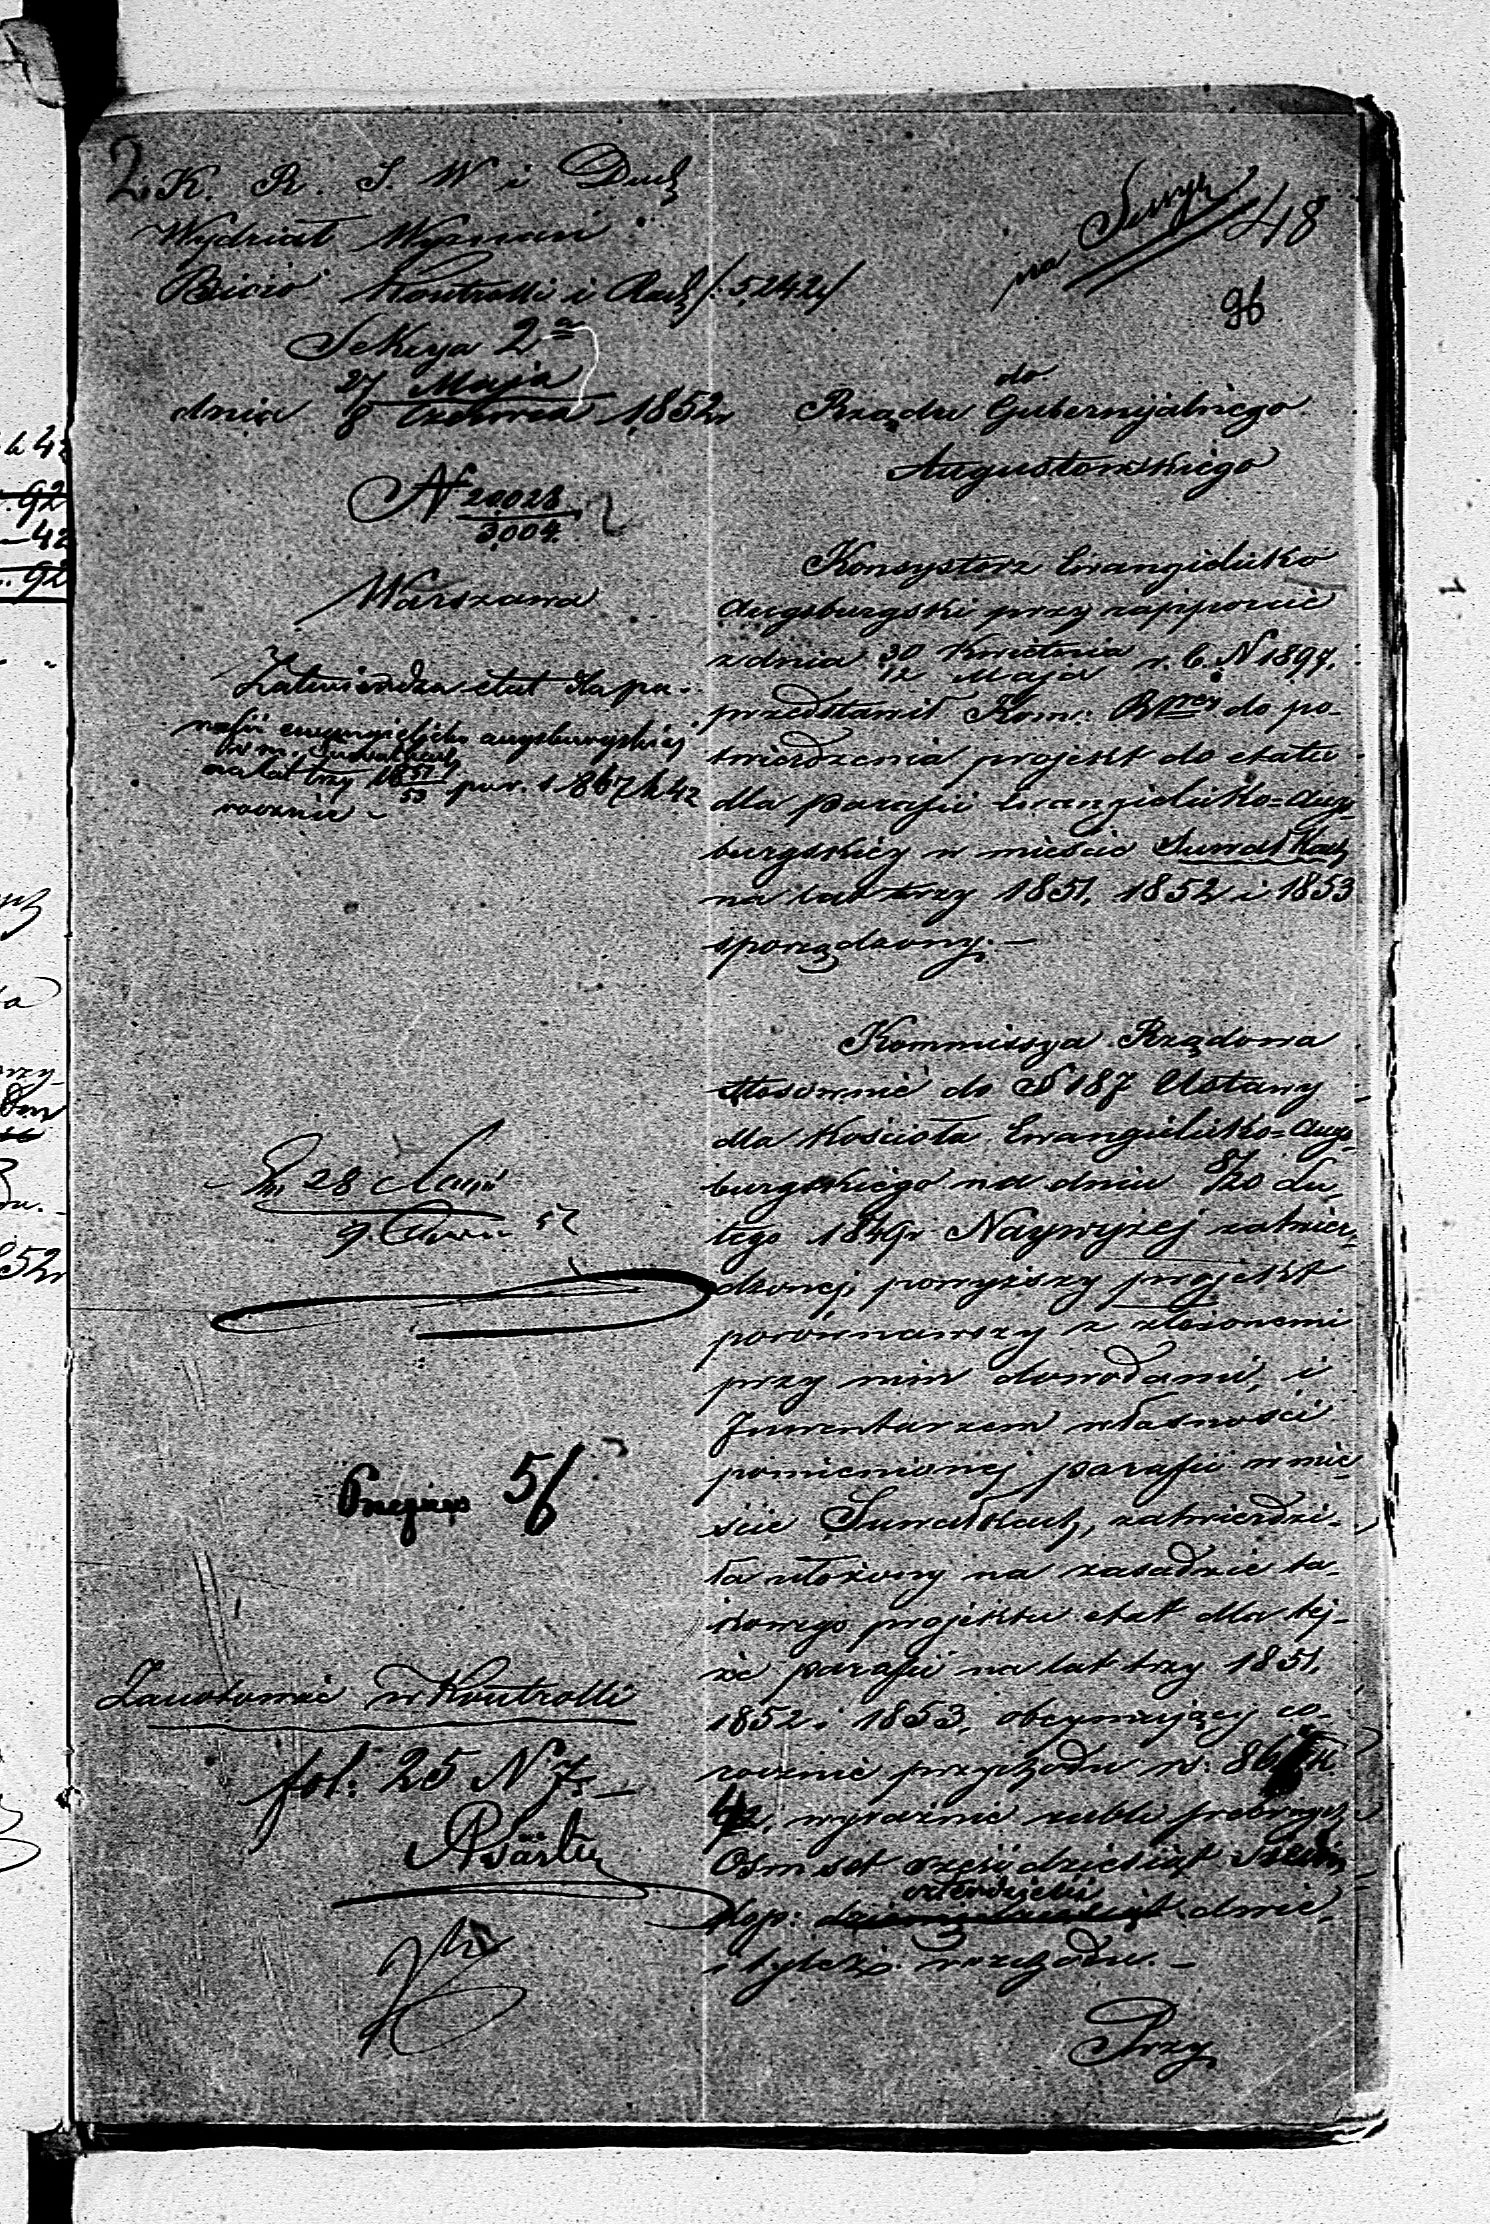 2. K. R. S. W i Duch
Wydział Wyznań
Biuro Kontrolli i Rach /: 5242 /
Sekcya 2a
27 Maja
dnia 8 Czerwca 1852r
N 20028
3,004
Warszawa
Zatwierdza etat dla pa-
rafii ewangielicko augsburgskiej
w m. Suwałkach
na lat trzy 1851/53 po r. s 867 k 42
rocznie -
28 Maja
9 Czerw 52
56
Zanotować w Kontrolli
fol: 25 N 7. -
na
48
96
do
Rządu Gubernyalnego
Augustowskiego
Konsystorz Ewangielicko
Augsburgski przy rapporcie
z dnia 30 Kwietnia / 12 Maja r. b. N 1897.
przedstawił Kom: Rząey do po-
twierdzenia projekt do etatu
dla parafii Ewangielicko=Augs-
burgskiey w mieście Suwałkach
na lat trzy 1851, 1852 i 1853
sporządzony. -
Kommissya Rządowa
stosownie do § 187 Ustawy
dla Kościoła Ewangielicko=Augs-
burgskiego na dniu 8/20 Lu-
tego 1849r Naywyżej zatwier-
dzonej, powyższy projekt
porównawszy z złożonemi
przy nim dowodami, i
Inwentarzem własności
pomienionej parafii w mie-
ście Suwałkach, zatwierdzi-
ła ułożony na zasadzie ta-
kowego projektu etat dla tej-
że parafii na lat trzy 1851,
1852 i 1853, obeymujący co-
rocznie przychodu rs: 867 k.
42, wyraźnie rubli srebrnych
Osmset sześćdziesiąt siedm
czterdzieści
kop: dwie,
i tyleż rozchodu. -
Przy